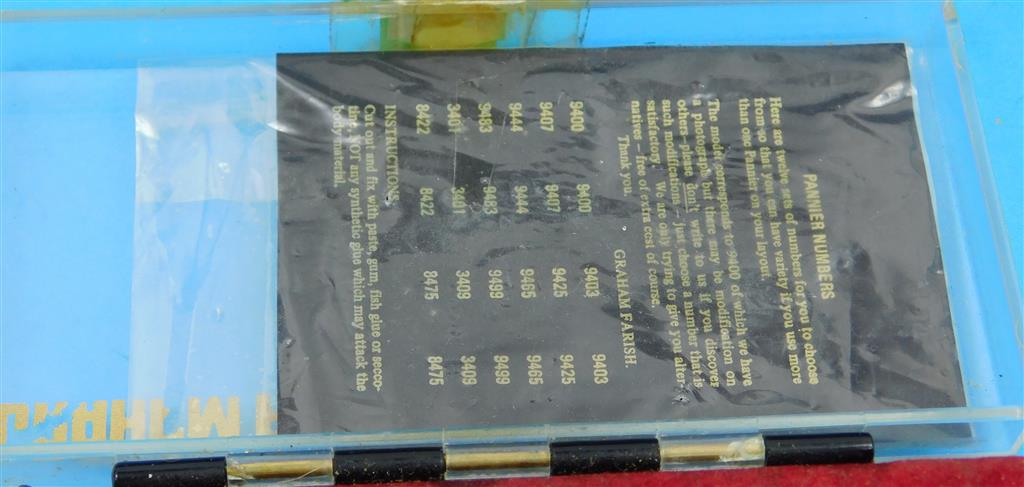 PANNIER NUMBERS
Here are twelve sets of numbers for you to choose
from so that you can have variety if you use more
than one Pannier on your layout.
The model corresponds to 9400 of which we have
a photograph but there may be modification on
others—please don't write to us if you discover
such modifications — just choose a number that is
satisfactory. We are only trying to give you alter-
natives — free of extra cost of course.
Thank you. GRAHAM FARISH.
9400 9400 9403 9403
9407 9407 9425 9425
9444 9444 9465 9465
9483 9483 9499 9499
3401 3401 3409 3409
8422 8422 8475 8475
INSTRUCTIONS
Cut out and fix with paste, gum, fish glue or secco-
tine NOT any synthetic glue which may attack the
body material.